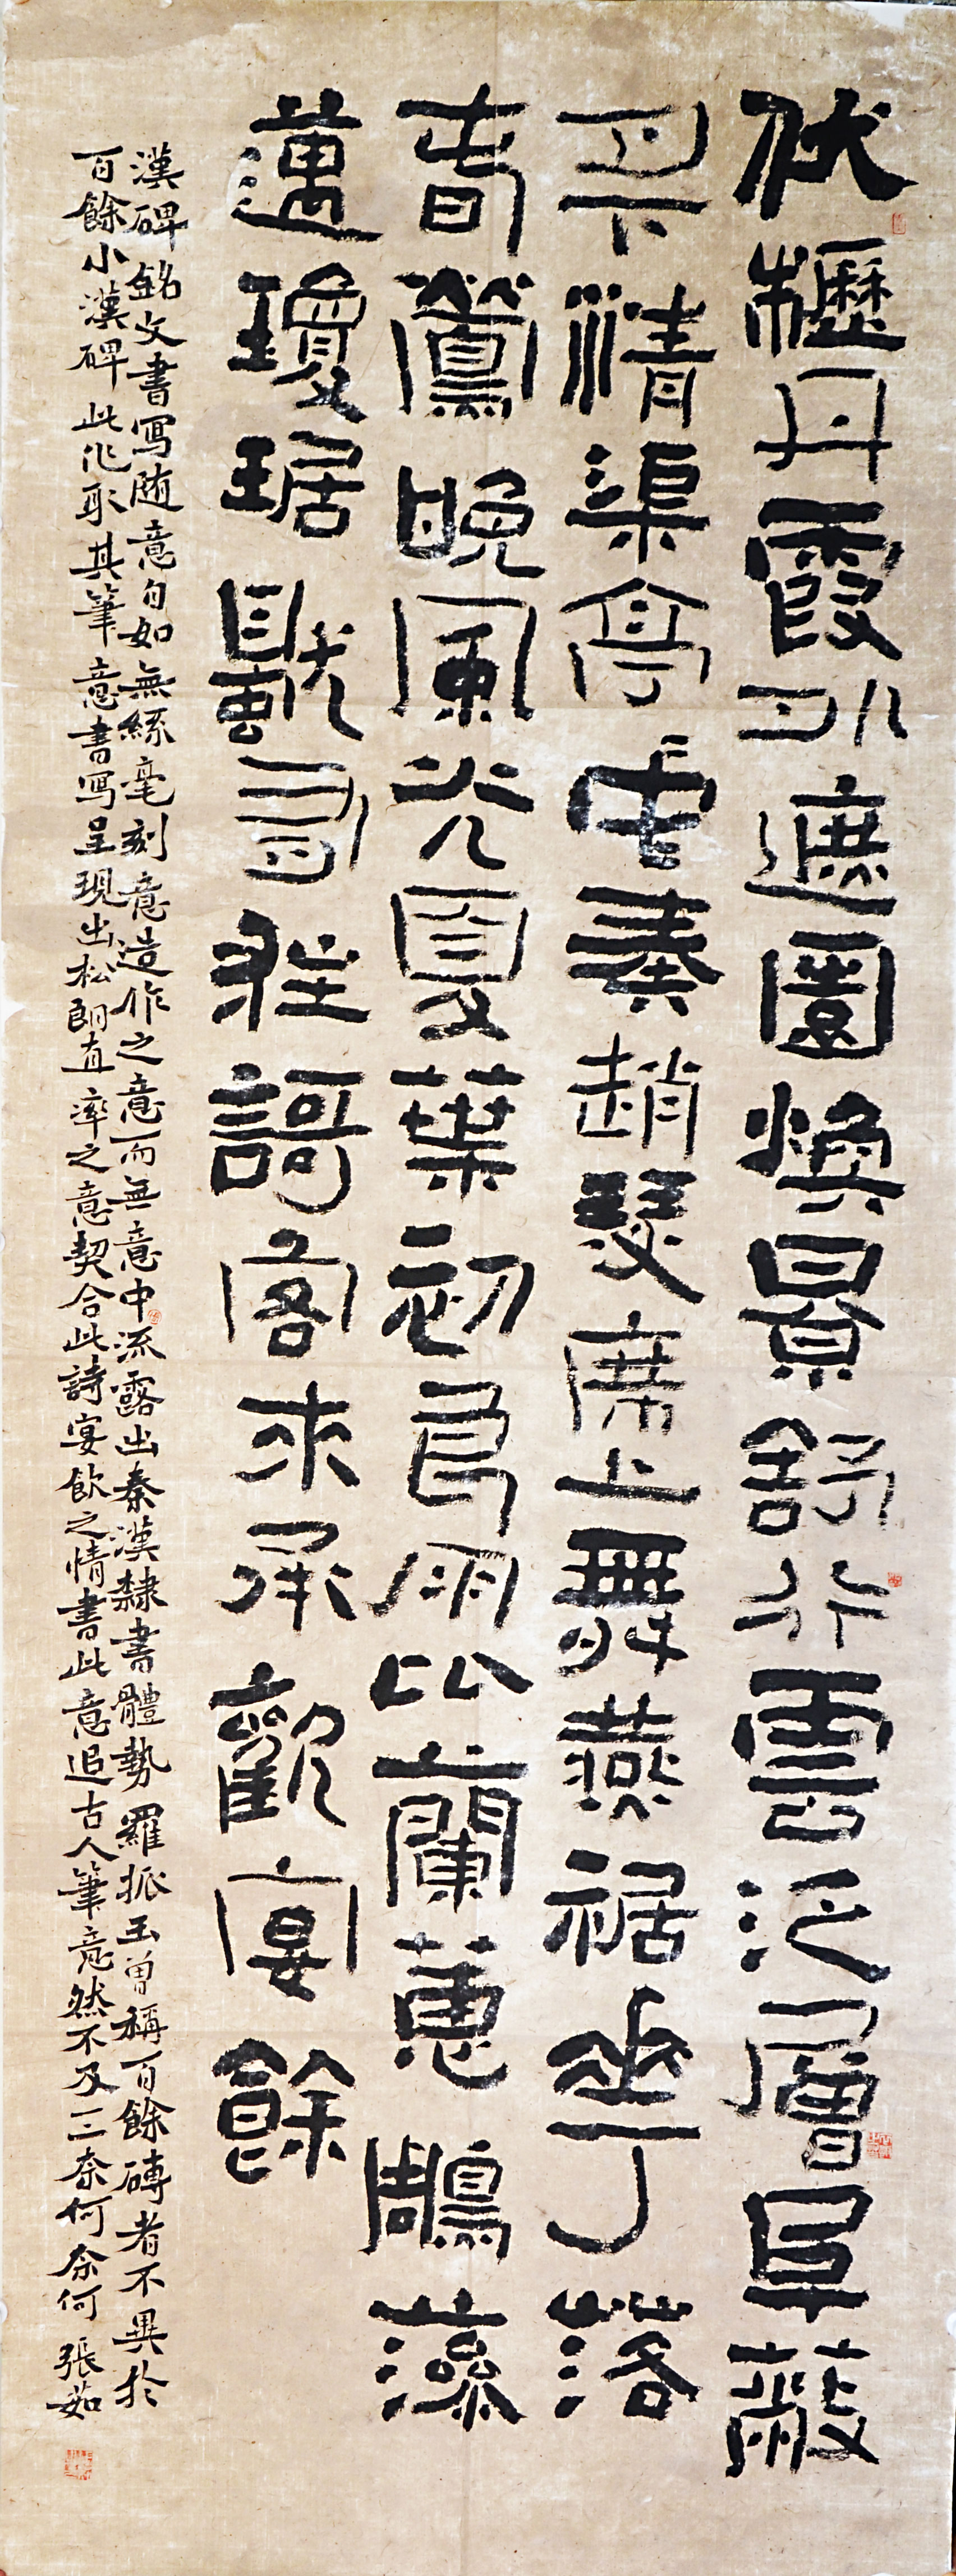 伏櫪丹霞外遮園煥景舒行雲泛層阜蔽
月下清渠亭中奏趙瑟席上舞燕裾華落
春鶯晚風光夏葉初良朋比蘭蕙鵰藻
邁瓊琚獨有狂謌客來承歡宴餘
漢碑銘文書寫随意自如無絲毫刻意造作之意而無意中流露出秦漢隸書體勢羅振玉曾稱百餘磚者不異於
百餘小漢碑此作取其筆意書寫呈現出松朗直率之意契合此詩宴飲之情書此意追古人筆意然不及一二奈何奈何張茹